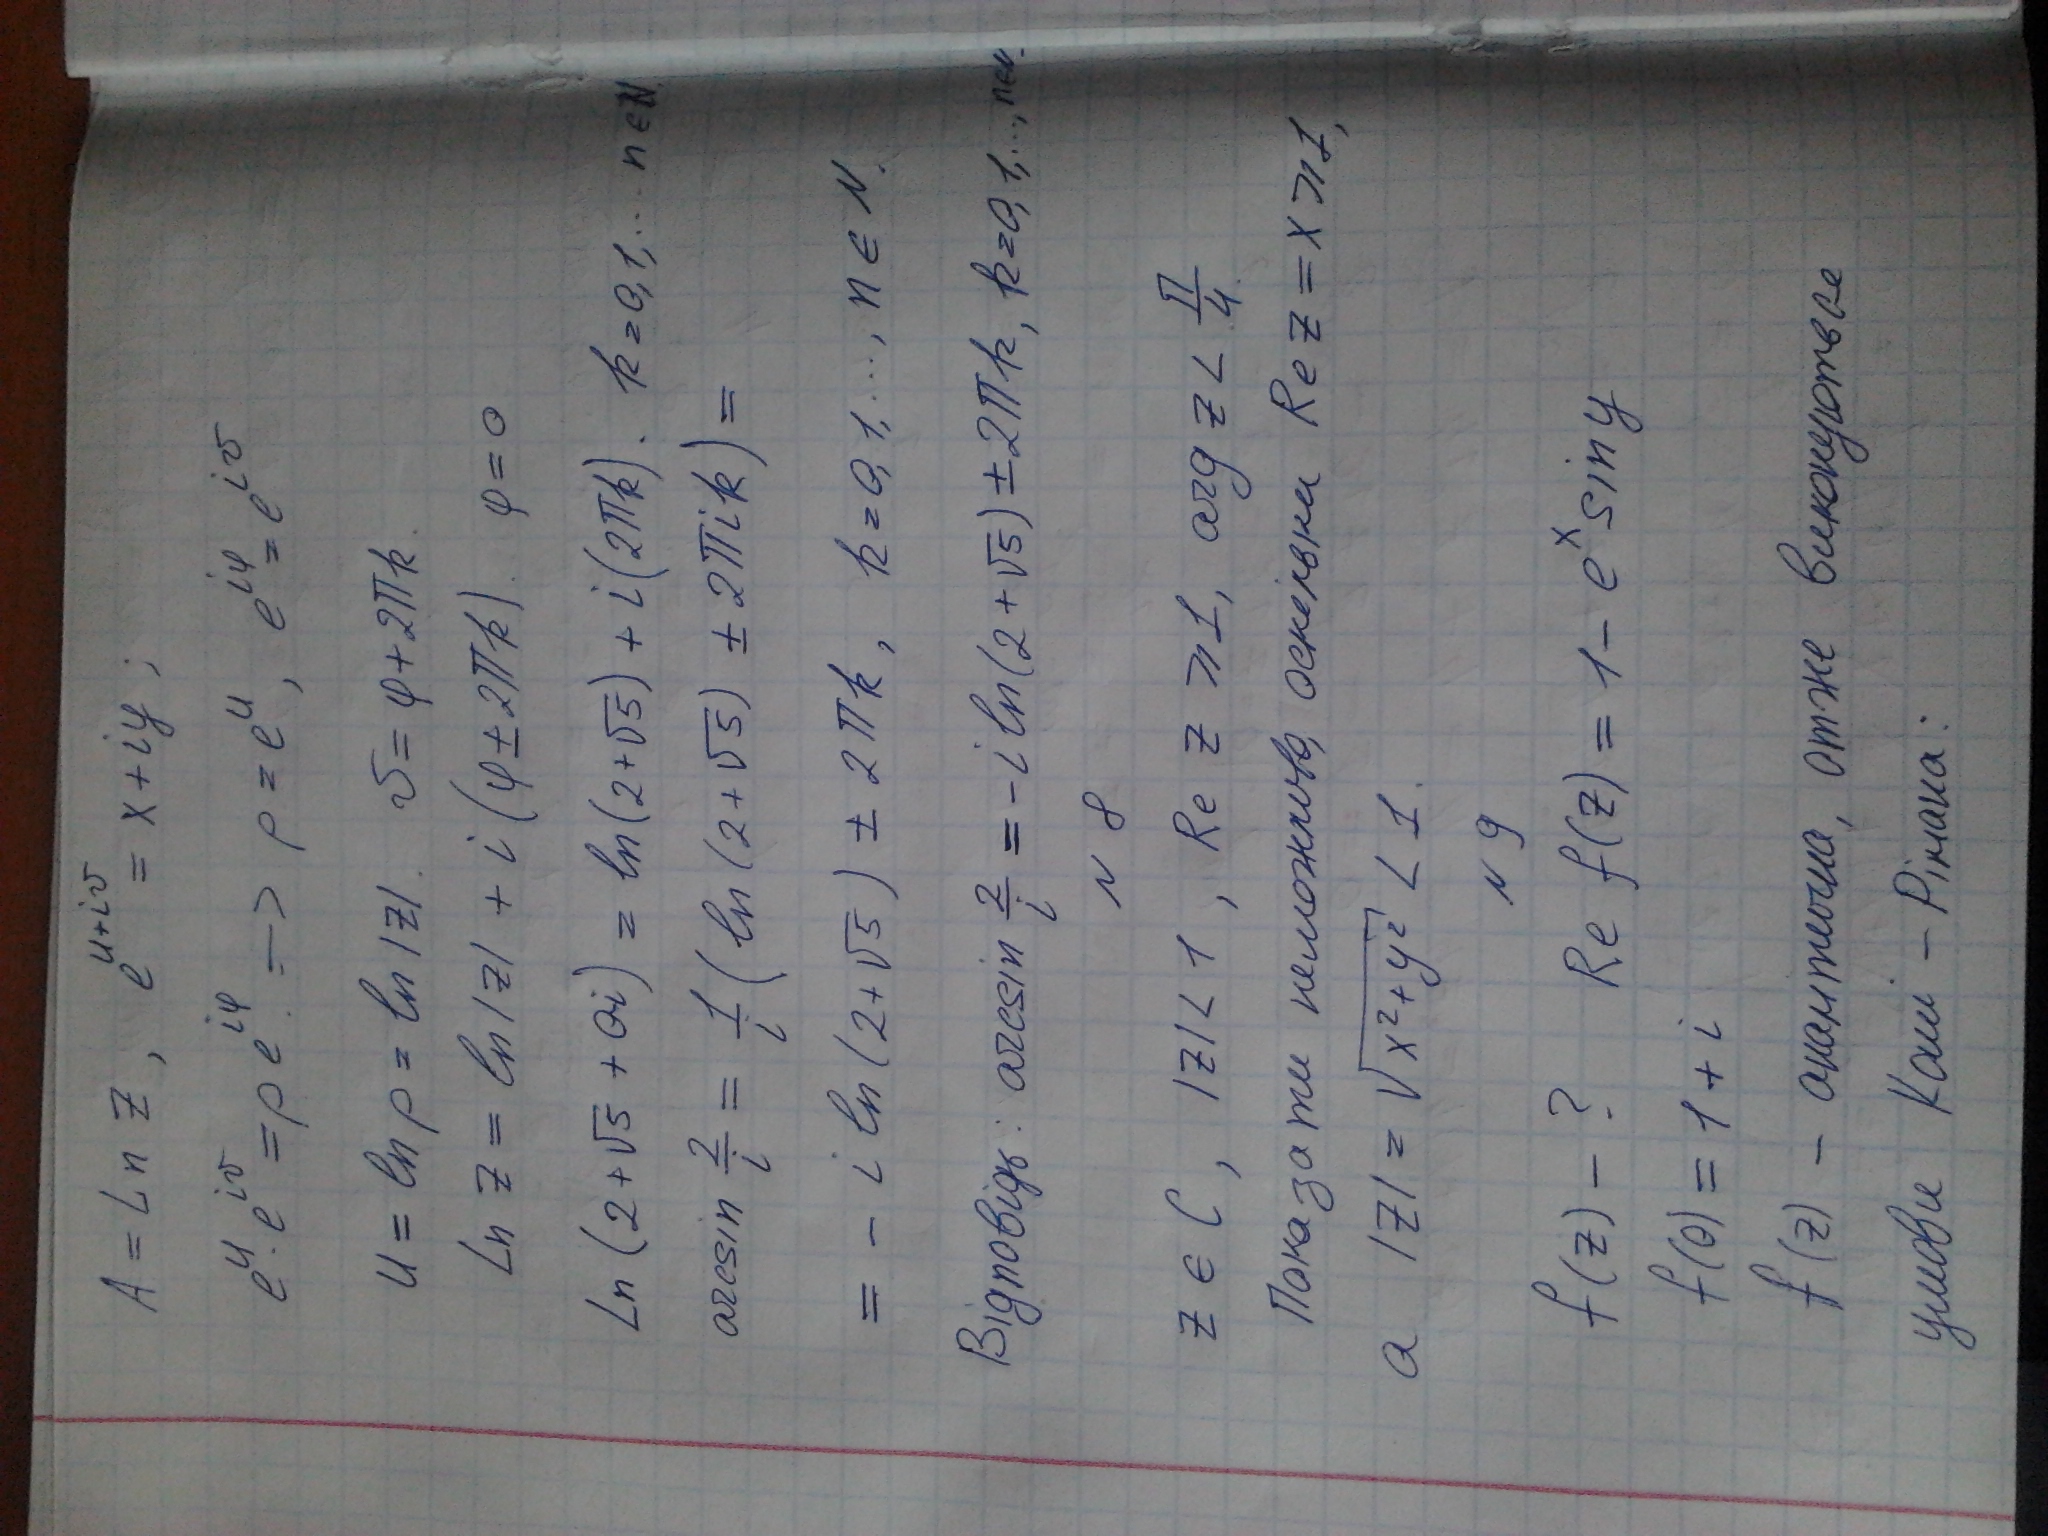 A = Ln Z, e^{u+iv} = x+iy;
e^u · e^{iv} = ρ e^{iφ}. => ρ = e^u, e^{iφ} = e^{iv}
u = ln ρ = ln |z|. v = φ + 2πk.
Ln z = ln|z| + i (φ ± 2πk). φ = 0
Ln (2+√5 + 0i) = ln(2+√5) + i(2πk). k=0,1,... n∈N.
arcsin 2/i = 1/i (ln(2+√5) ± 2πik) =
= - i ln(2+√5) ± 2πk, k=0,1,..., n∈N.
Відповідь: arcsin 2/i = -i ln(2+√5) ± 2πk, k=0,1,..., n∈N.
N 8
z ∈ C, |z| < 1, Re z ⩾ 1, arg z < π/4.
Показати неможливо, оскільки Re z = x ⩾ 1,
а |z| = √(x²+y²) < 1.
N 9
f(z) - ? Re f(z) = 1 - e^x sin y
f(0) = 1 + i
f(z) - аналітична, отже виконуються
умови Коші - Рімана: